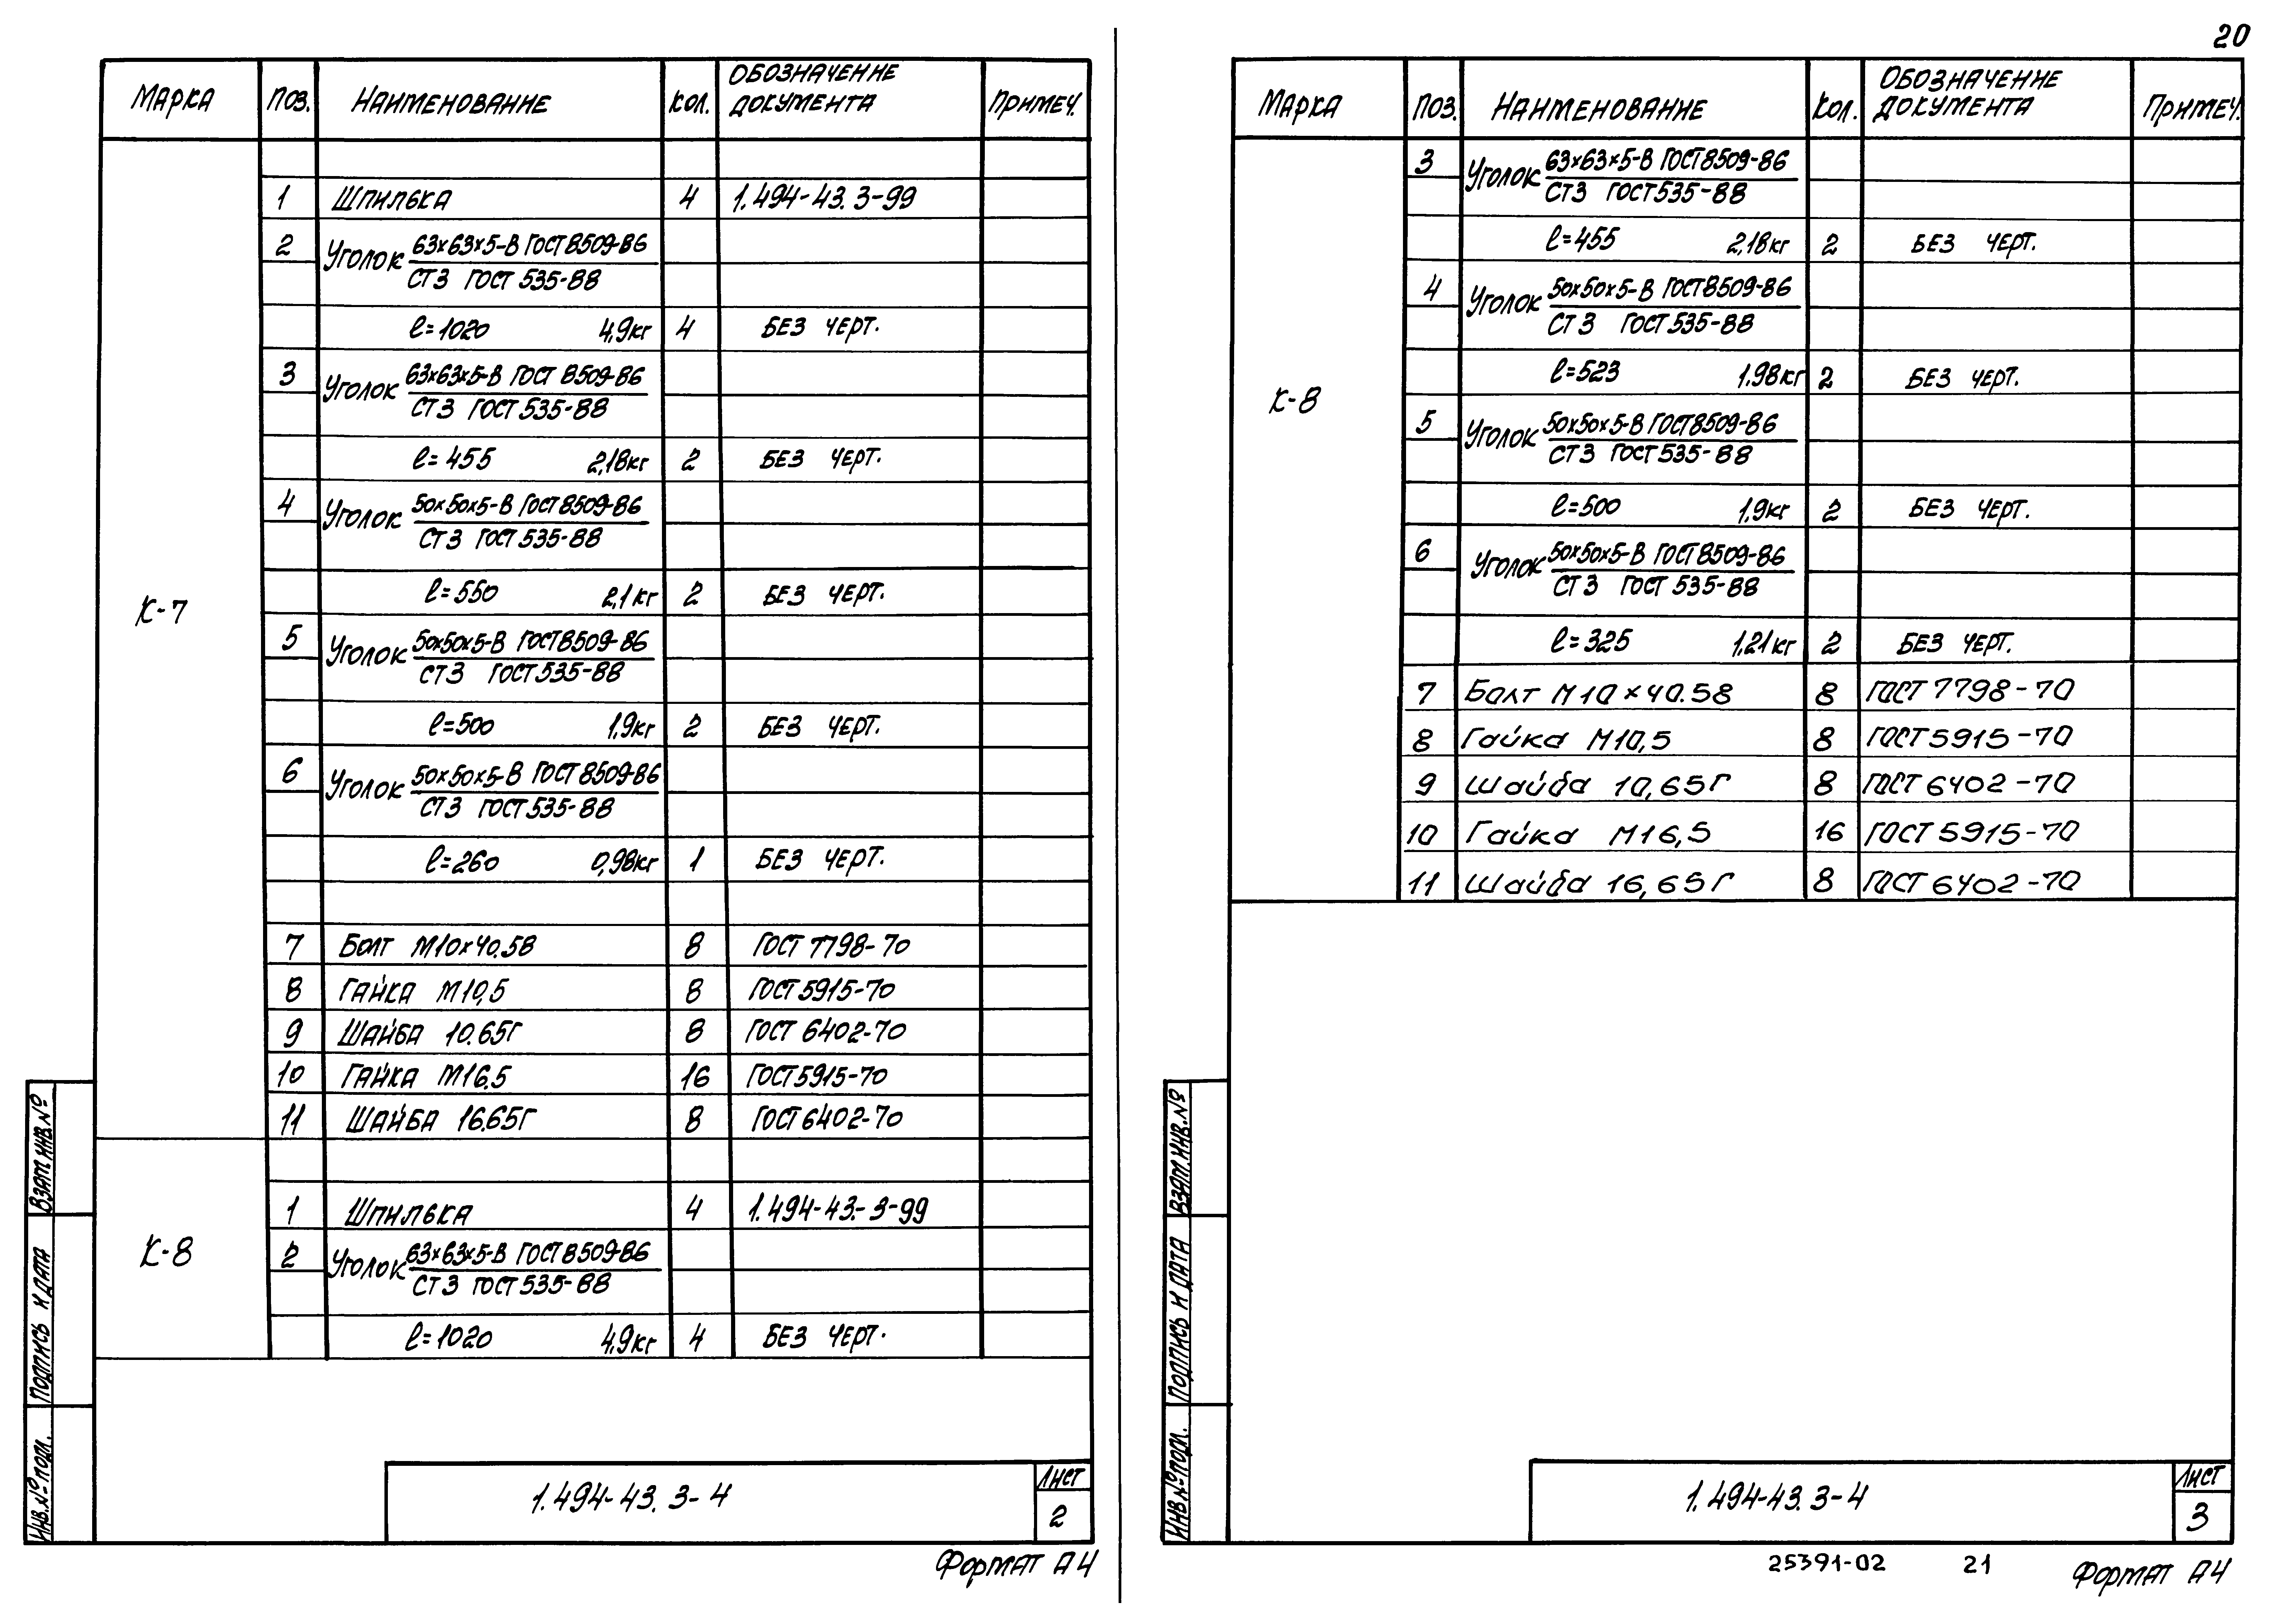 20
МАРКА ПОЗ. НАИМЕНОВАНИЕ КОЛ. ОБОЗНАЧЕНИЕ ДОКУМЕНТА ПРИМЕЧ.
К-7
1 ШПИЛЬКА 4 1.494-43.3-99
2 УГОЛОК 63×63×5-В ГОСТ 8509-86
СТ3 ГОСТ 535-88
ℓ=1020 4,9кг 4 БЕЗ ЧЕРТ.
3 УГОЛОК 63×63×5-В ГОСТ 8509-86
СТ3 ГОСТ 535-88
ℓ=455 2,18кг 2 БЕЗ ЧЕРТ.
4 УГОЛОК 50×50×5-В ГОСТ 8509-86
СТ3 ГОСТ 535-88
ℓ=550 2,1кг 2 БЕЗ ЧЕРТ.
5 УГОЛОК 50×50×5-В ГОСТ 8509-86
СТ3 ГОСТ 535-88
ℓ=500 1,9кг 2 БЕЗ ЧЕРТ.
6 УГОЛОК 50×50×5-В ГОСТ 8509-86
СТ3 ГОСТ 535-88
ℓ=260 0,98кг 1 БЕЗ ЧЕРТ.
7 БОЛТ М10×40.58 8 ГОСТ 7798-70
8 ГАЙКА М10,5 8 ГОСТ 5915-70
9 ШАЙБА 10.65Г 8 ГОСТ 6402-70
10 ГАЙКА М16.5 16 ГОСТ 5915-70
11 ШАЙБА 16.65Г 8 ГОСТ 6402-70
К-8
1 ШПИЛЬКА 4 1.494-43.-3-99
2 УГОЛОК 63×63×5-В ГОСТ 8509-86
СТ3 ГОСТ 535-88
ℓ=1020 4,9кг 4 БЕЗ ЧЕРТ.
ВЗАМ.ИНВ.№
ПОДПИСЬ И ДАТА
ИНВ.№ ПОДЛ.
1.494-43. 3-4
ЛИСТ
2
ФОРМАТ А4
МАРКА ПОЗ. НАИМЕНОВАНИЕ КОЛ. ОБОЗНАЧЕНИЕ ДОКУМЕНТА ПРИМЕЧ.
К-8
3 УГОЛОК 63×63×5-В ГОСТ 8509-86
СТ3 ГОСТ 535-88
ℓ=455 2,18кг 2 БЕЗ ЧЕРТ.
4 УГОЛОК 50×50×5-В ГОСТ 8509-86
СТ3 ГОСТ 535-88
ℓ=523 1.98кг 2 БЕЗ ЧЕРТ.
5 УГОЛОК 50×50×5-В ГОСТ 8509-86
СТ3 ГОСТ 535-88
ℓ=500 1,9кг 2 БЕЗ ЧЕРТ.
6 УГОЛОК 50×50×5-В ГОСТ 8509-86
СТ3 ГОСТ 535-88
ℓ=325 1.21кг 2 БЕЗ ЧЕРТ.
7 Болт М10×40.58 8 ГОСТ 7798-70
8 Гайка М10,5 8 ГОСТ 5915-70
9 Шайба 10,65Г 8 ГОСТ 6402-70
10 Гайка М16,5 16 ГОСТ 5915-70
11 Шайба 16,65Г 8 ГОСТ 6402-70
ВЗАМ.ИНВ.№
ПОДПИСЬ И ДАТА
ИНВ.№ ПОДЛ.
1.494-43.3-4
ЛИСТ
3
25391-02 21
ФОРМАТ А4